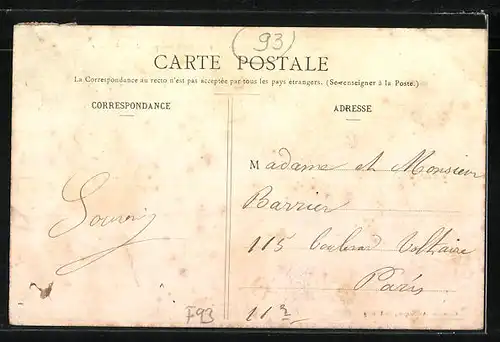 (93)
CARTE POSTALE
La Correspondance au recto n'est pas acceptée par tous les pays étrangers. (Se renseigner à la Poste.)
CORRESPONDANCE
ADRESSE
Madame et Monsieur
Barrier
115 boulevard Voltaire
Paris
11e
F93